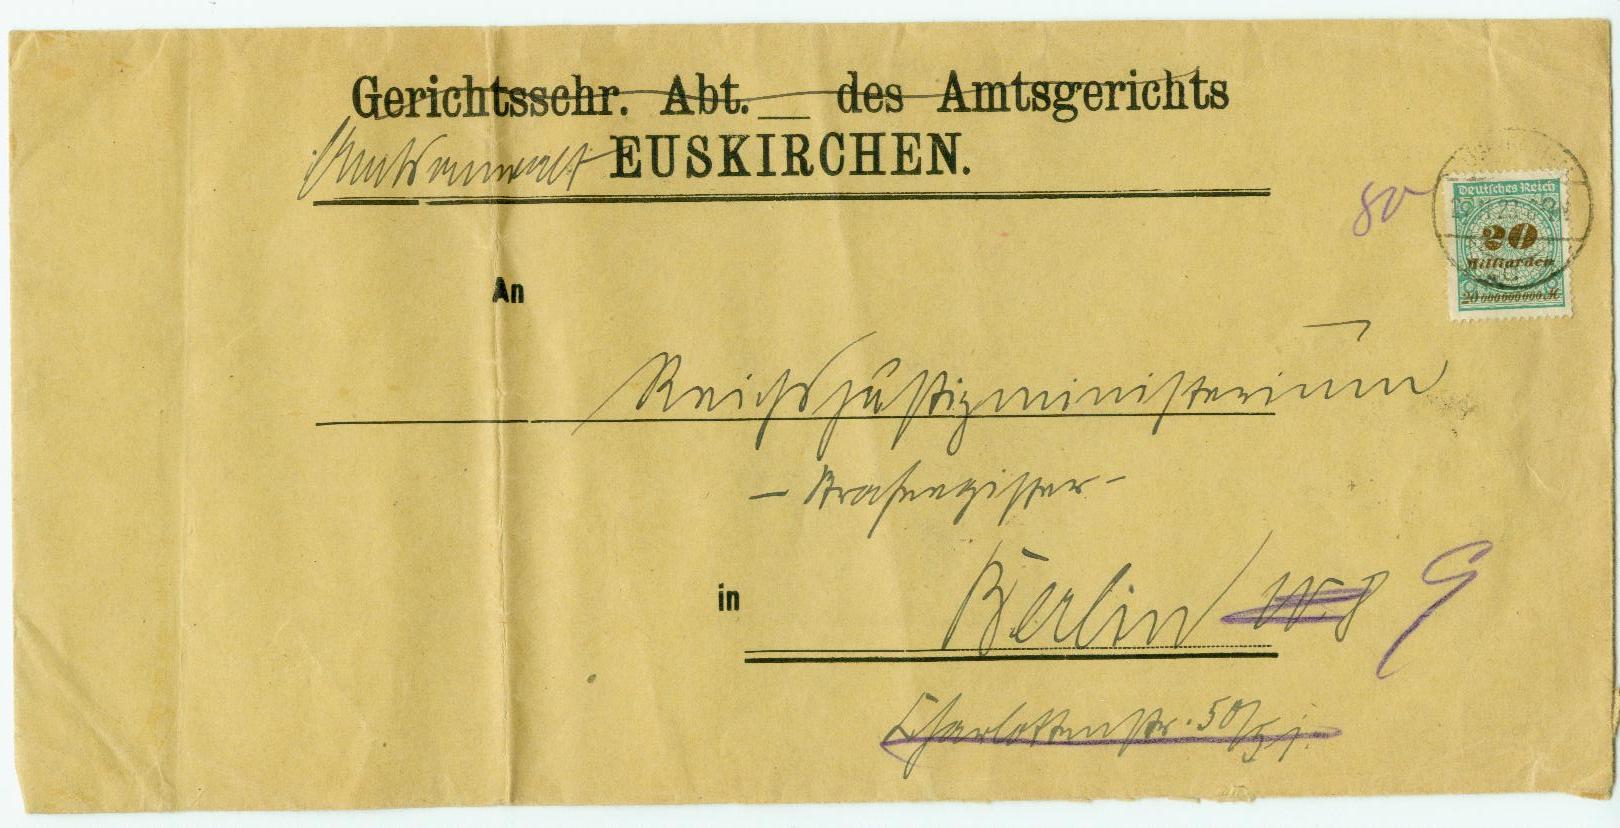 Gerichtsschr. Abt. __ des Amtsgerichts
Amtsanwalt EUSKIRCHEN.
80
Deutsches Reich
20
Milliarden
20 000 000 000 M
An
Reichsjustizministerium
- Strafregister -
in
Berlin W. 8 9
Charlottenstr. 50/51.